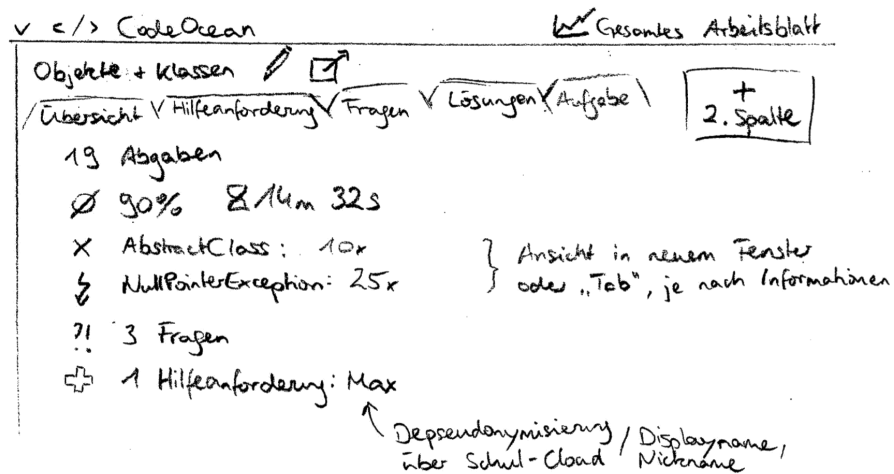 v </> CodeOcean
Gesamtes Arbeitsblatt
Objekte + Klassen
Übersicht Hilfeanforderung Fragen Lösungen Aufgabe
+
2. Spalte
19 Abgaben
Ø 90% 14m 32s
X AbstractClass: 10x
NullPointerException: 25x
} Ansicht in neuem Fenster
oder „Tab", je nach Informationen
?! 3 Fragen
1 Hilfeanforderung: Max
Depseudonymisierung / Displayname,
über Schul-Cloud Nickname